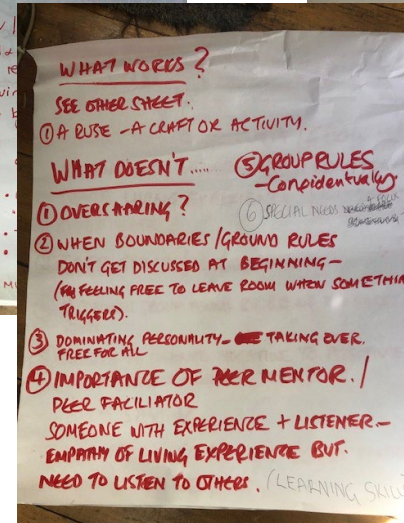 WHAT WORKS?
SEE OTHER SHEET.
① A RUSE - A CRAFT OR ACTIVITY.
WHAT DOESN'T.....
⑤ GROUP RULES
- Confidentualy.
① OVERSHARING?
⑥ SPECIAL NEEDS
A FOCUS
② WHEN BOUNDARIES/GROUND RULES
DON'T GET DISCUSSED AT BEGINNING -
( FEELING FREE TO LEAVE ROOM WHEN SOMETHIN
TRIGGERS).
③ DOMINATING PERSONALITY - TAKING OVER.
FREE FOR ALL
④ IMPORTANCE OF PEER MENTOR. /
PEER FACILIATOR
SOMEONE WITH EXPERIENCE + LISTENER -
EMPATHY OF LIVING EXPERIENCE BUT.
NEED TO LISTEN TO OTHERS. (LEARNING SKILL